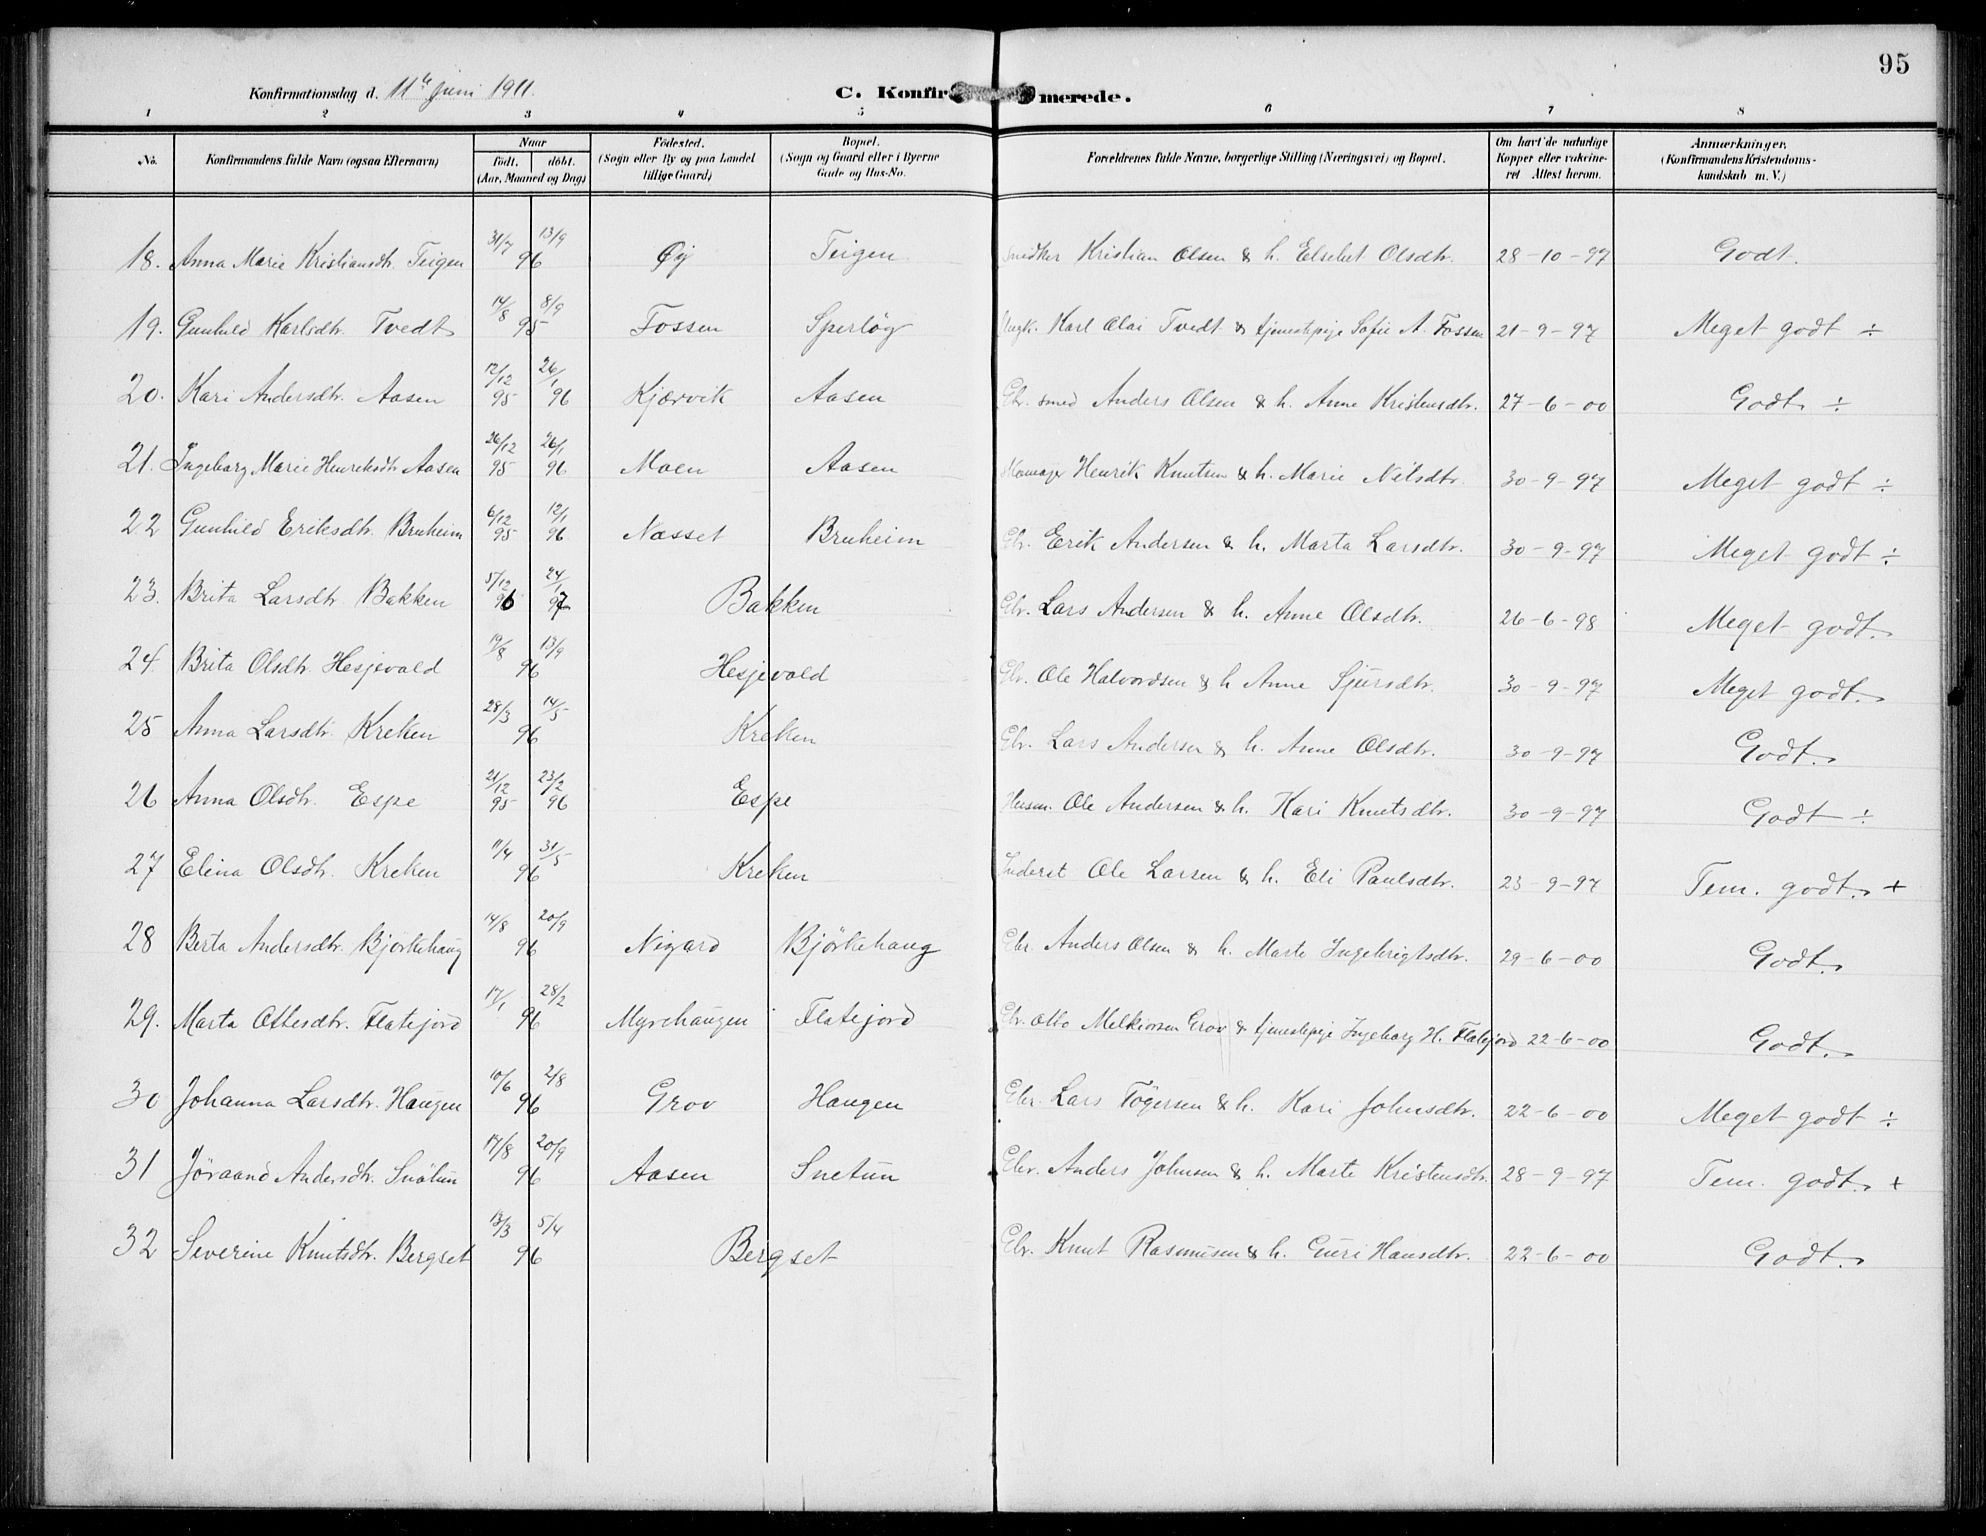 95
Konfirmationsdag d. 11te Juni 1911.
C. Konfirmerede.
1 2 3 4 5 6 7 8
No. Konfirmandens fulde Navn (ogsaa Efternavn) Naar födt. döbt. (Aar, Maaned og Dag) Födested. (Sogn eller By og paa Landet tillige Gaard) Bopæl. (Sogn og Gaard eller i Byerne Gade og Hus-No. Forældrenes fulde Navne, borgerlige Stilling (Næringsvei) og Bopæl. Om havt de naturlige Kopper eller vakcineret Attest herom. Anmærkninger, (Konfirmandens Kristendomskundskab m. V.)
18. Anna Marie Kristiansdtr. Teigen 31/7 13/9 96 Øy Teigen Snedker Kristian Olsen & h. Elsebet Olsdtr. 28-10-97 Godt.
19. Gunhild Karlsdtr. Tvedt 14/8 8/9 95 Fossen Sperløg Ungk. Karl Olai Tvedt & tjenestepige Sofie A. Fossen 21-9-97 Meget godt ÷
20. Kari Andersdtr. Aasen 12/12 95 26/1 96 Kjærvik Aasen Gbr. smed Anders Olsen & h. Anne Kristensdtr. 27-6-00 Godt ÷
21. Ingeborg Marie Henriksdtr Aasen 26/12 95 26/1 96 Moen Aasen Skomager Henrik Knutsen & h. Marie Nilsdtr. 30-9-97 Meget godt ÷
22 Gunhild Eriksdtr. Bruheim 6/12 95 12/1 96 Næsset Bruheim Gbr. Erik Andersen & h. Marta Larsdtr. 30-9-97 Meget godt ÷
23. Brita Larsdtr. Bakken 5/12 96 24/1 97 Bakken Gbr. Lars Andersen & h. Anne Olsdtr. 26-6-98 Meget godt.
24. Brita Olsdtr. Hesjevold 19/8 13/9 96 Hesjevold Gbr. Ole Halvordsen & h Anne Sjursdtr. 30-9-97 Meget godt.
25 Anna Larsdtr. Kreken 28/3 14/5 96 Kreken Gbr. Lars Andersen & h. Anne Olsdtr. 30-9-97 Godt.
26 Anna Olsdtr. Espe 21/12 95 23/2 96 Espe Husm. Ole Andersen & h. Kari Knutsdtr. 30-9-97 Godt ÷
27 Elina Olsdtr. Kreken 11/4 31/5 96 Kreken Inderst Ole Larsen & h. Eli Paulsdtr. 23-9-97 Tem. godt. +
28 Berta Andersdtr. Bjørkehaug 14/8 20/9 96 Nigard Bjørkehaug Gbr. Anders Olsen & h. Marte Ingebrigtsdtr. 29-6-00 Godt.
29. Marta Ottesdtr. Flatejord 17/1 28/2 96 Myrehaugen Flatejord Gbr. Otto Melkiorsen Grov & tjenestepige Ingeborg H. Flatejord 22-6-00 Godt.
30 Johanna Larsdtr. Haugen 10/6 2/8 96 Grov Haugen Gbr. Lars Tøgersen & h. Kari Johnsdtr. 22-6-00 Meget godt ÷
31 Jöraand Andersdtr. Snötun 17/8 20/9 96 Aasen Snetun Gbr. Anders Johnsen & h. Marte Kristensdtr. 28-9-97 Tem. godt. +
32 Severine Knutsdtr. Bergset 13/3 5/4 96 Bergset Gbr. Knut Rasmusen & h. Guri Hansdtr. 22-6-00 Godt.